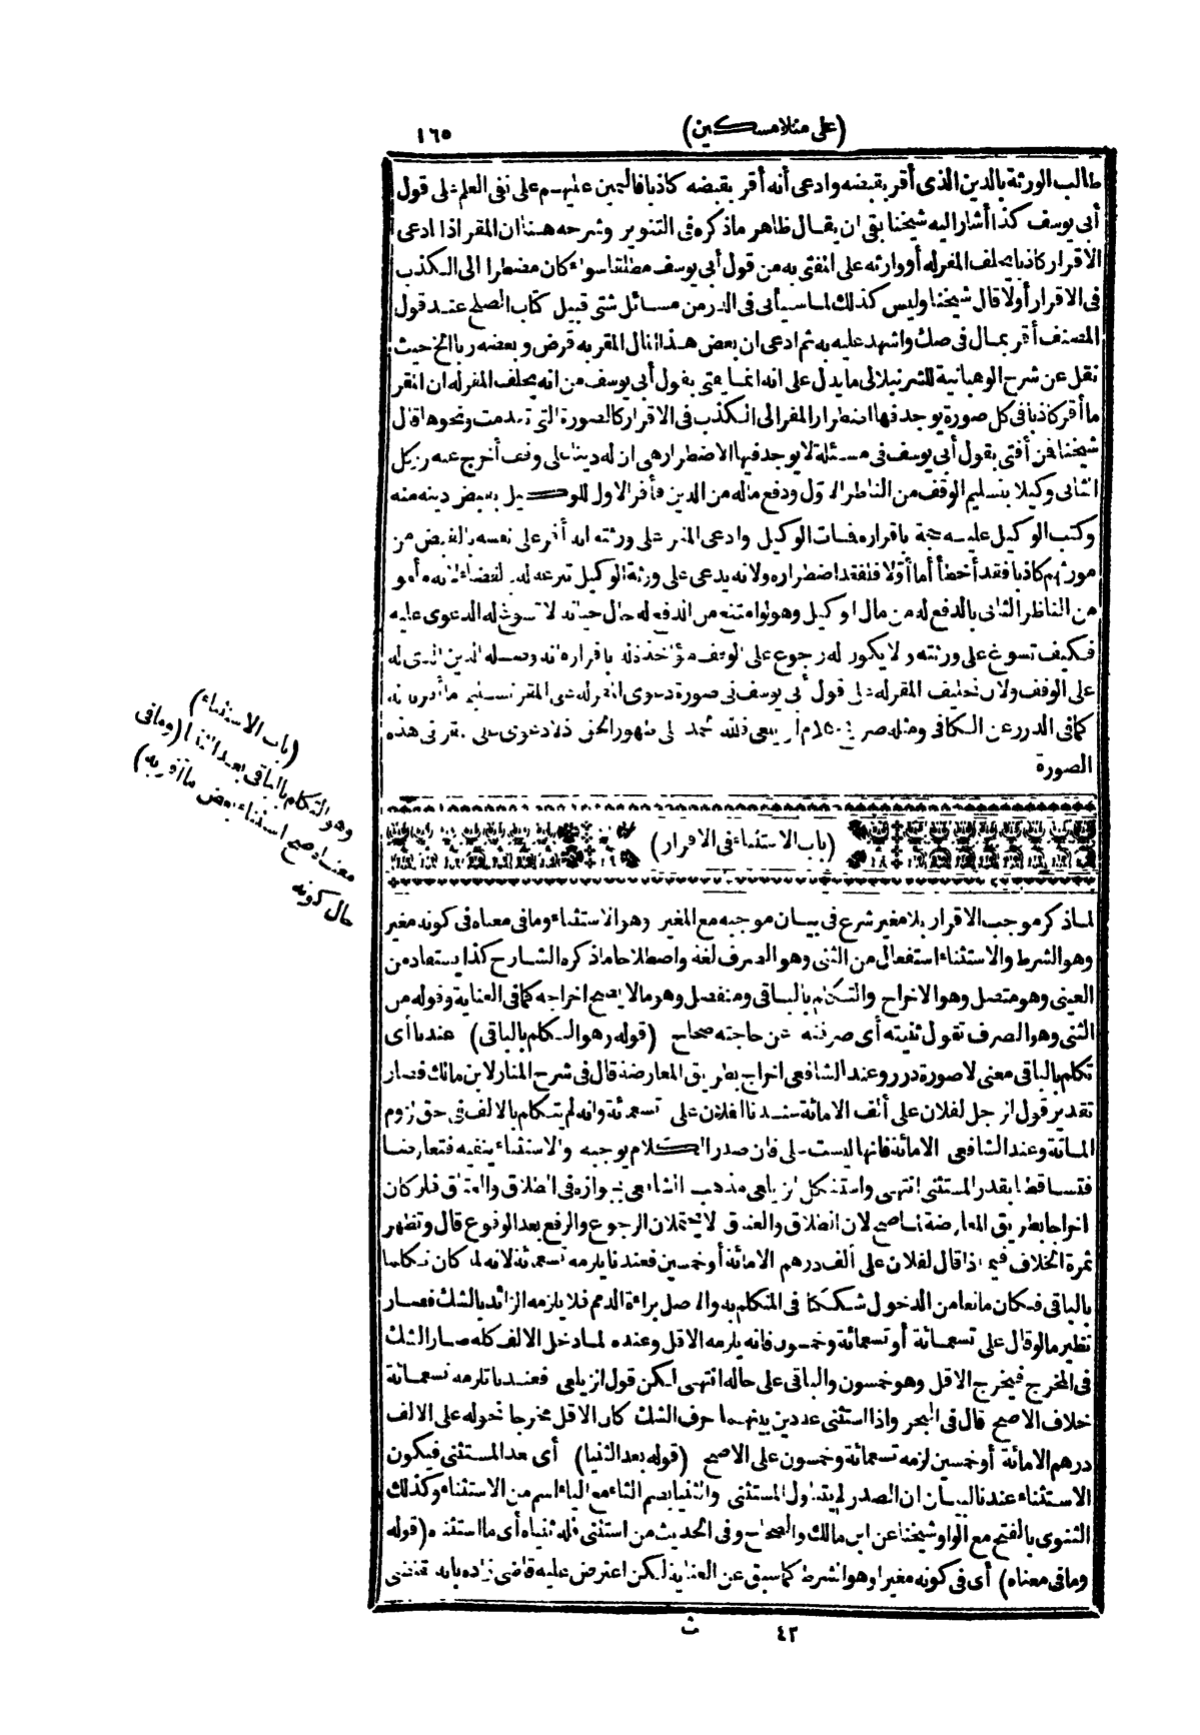 (على منلامسكين) ١٦٥
طالب الورثة بالدين الذى أقر بقبضه وادعى أنه أقر بقبضه كاذبا فاليمين عليهم على نفى العلم على قول
أبى يوسف كذا أشار اليه شيخنا بقى ان يقال ظاهر ماذكره فى التنوير وشرحه هنا ان المقر اذا ادعى
الاقرار كاذبا يحلف المقرله أو وارثه على المفتى به من قول أبى يوسف مطلقا سواء كان مضطرا الى الكذب
فى الاقرار أولا قال شيخنا وليس كذلك لما سيأتى فى الدر من مسائل شتى قبيل كتاب الصلح عند قول
المصنف أقر بمال فى صك واشهد عليه به ثم ادعى ان بعض هذا المال المقر به قرض وبعضه ربا الخ حيث
نقل عن شرح الوهبانية للشرنبلالى مايدل على انه انما يفتى بقول أبى يوسف من انه يحلف المقرله ان المقر
ما أقر كاذبا فى كل صورة يوجد فيها اضطرار المقر الى الكذب فى الاقرار كالصورة التى تقدمت ونحوها قال
شيخنا فمن أفتى بقول أبى يوسف فى مسئلة لا يوجد فيها الاضطرار هى ان له دينا على وقف أخرج عنه وكل
الثانى وكيلا بتسليم الوقف من الناظر الاول ودفع ماله من الدين فأقر الاول للوكيل بقبض دينه منه
وكتب الوكيل عليه حجة باقراره فمات الوكيل وادعى المقر على ورثته انه أقر على نفسه بالقبض من
مورثهم كاذبا فقد أخطأ أما أولا فلفقد اضطراره ولانه يدعى على ورثة الوكيل تبرعه له
من الناظر الثانى بالدفع له من مال الوكيل وهو لو امتنع من الدفع له حال حياته لا تسوغ له الدعوى عليه
فكيف تسوغ على ورثته ولا يكون له رجوع على الوقف مؤاخذة له باقراره انه وصله الدين الذى له
على الوقف ولان تحليف المقرله على قول أبى يوسف فى صورة دعوى المقرله على المقر تسليم ما أقر به له
كما فى الدرر عن الكافى ومثله
الصورة
(باب الاستثناء)
وهو التكلم بالباقى بعد الثنيا (وما فى
معناه صح استثناء بعض ما أقر به)
حال كونه
(باب الاستثناء فى الاقرار)
لماذكر موجب الاقرار بلا مغير شرع فى بيان موجبه مع المغير وهو الاستثناء وما فى معناه فى كونه مغير
وهو الشرط والاستثناء استفعال من الثنى وهو الصرف لغة واصطلاحا ماذكره الشارح كذا يستفاد من
العينى وهو متصل وهو الاخراج والتكلم بالباقى ومنفصل وهو مالا يصح اخراجه كما فى العناية وقوله من
الثنى وهو الصرف تقول ثنيته أى صرفته عن حاجته صحاح (قوله وهو التكلم بالباقى) عندنا أى
تكلم بالباقى معنى لا صورة درر وعند الشافعى اخراج بطريق المعارضة قال فى شرح المنار لابن مالك فصار
تقدير قول الرجل لفلان على ألف الامائة عندنا لفلان على تسعمائة وانه لم يتكلم بالالف فى حق لزوم
المائة وعند الشافعى الامائة فانها ليست على فان صدر الكلام يوجبه والاستثناء ينفيه فتعارضا
فتساقطا بقدر المستثنى انتهى واستشكل الزيلعى مذهب الشافعى بجوازه فى الطلاق والعتاق فلو كان
اخراجا بطريق المعارضة لما صح لان الطلاق والعتق لا يحتملان الرجوع والرفع بعد الوقوع قال وتظهر
ثمرة الخلاف فيما اذا قال لفلان على ألف درهم الامائة أو خمسين فعندنا يلزمه تسعمائة لانه لما كان تكلما
بالباقى فكان مانعا من الدخول شككنا فى المتكلم به والاصل براءة الذمم فلا يلزمه الزائد بالشك فصار
نظير مالو قال على تسعمائة أو تسعمائة وخمسون فانه يلزمه الاقل وعنده لما دخل الالف كله صار الشك
فى المخرج فيخرج الاقل وهو خمسون والباقى على حاله انتهى لكن قول الزيلعى فعندنا تلزمه تسعمائة
خلاف الاصح قال فى البحر واذا استثنى عددين بينهما حرف الشك كان الاقل مخرجا نحو له على الالف
درهم الامائة أو خمسين لزمه تسعمائة وخمسون على الاصح (قوله بعد الثنيا) أى بعد المستثنى فيكون
الاستثناء عندنا لبيان ان الصدر لم يتناول المستثنى والثنيا بضم الثاء مع الياء اسم من الاستثناء وكذلك
الثنوى بالفتح مع الواو شيخنا عن ابن مالك والصحاح وفى الحديث من استثنى فله ثنياه أى ما استثناه (قوله
وما فى معناه) أى فى كونه مغيرا وهو الشرط كما سبق عن العناية لكن اعترض عليه قاضى زاده بانه تقتضى
٤٢ ث